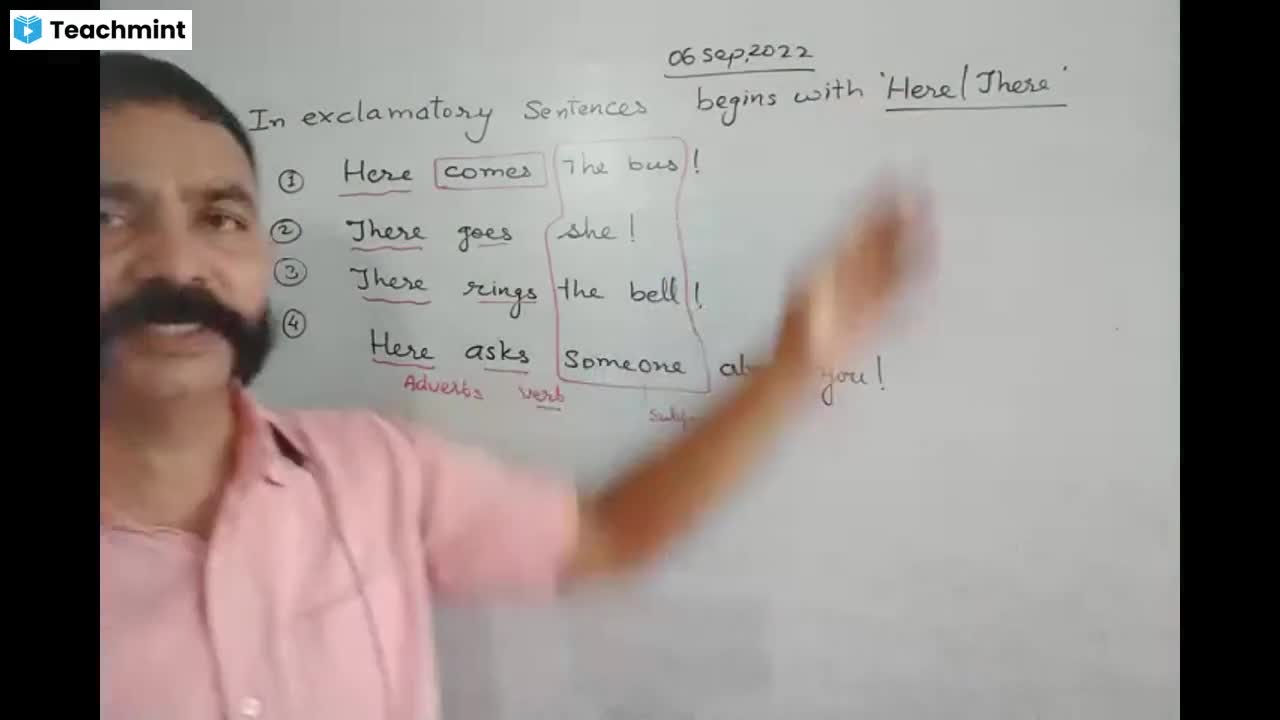 Teachmint
06 Sep, 2022
In exclamatory Sentences begins with 'Here/There'
① Here comes The bus!
② There goes she!
③ There rings the bell!
④ Here asks Someone you!
Adverbs verb